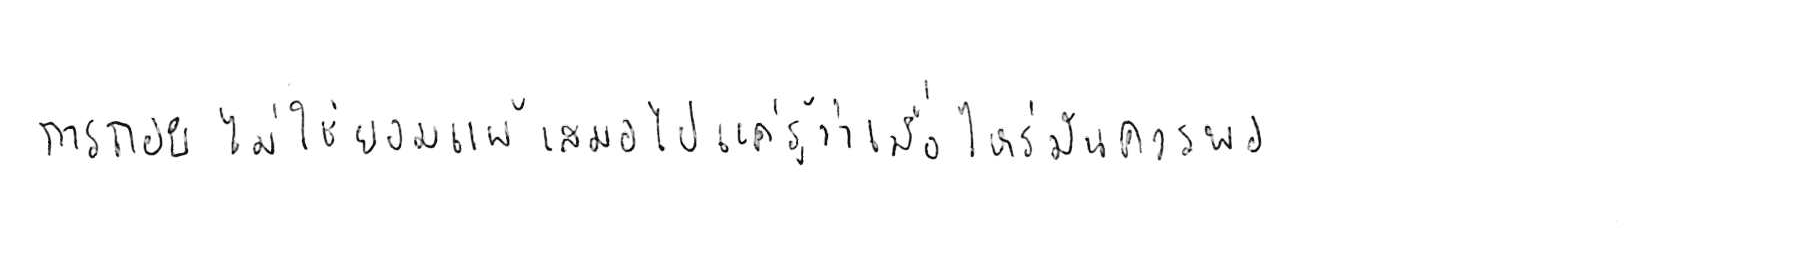 การถอย ไม่ใช่ยอมแพ้เสมอไปแค่รู้ว่าเมื่อไหร่มันควรพอ